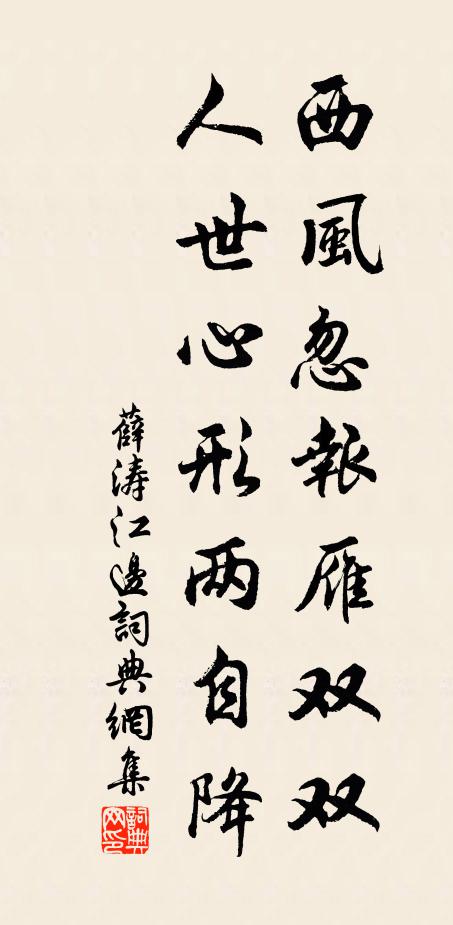 西風忽報雁双双
人世心形两自降
薛涛江邊詞典網集
詞典网印